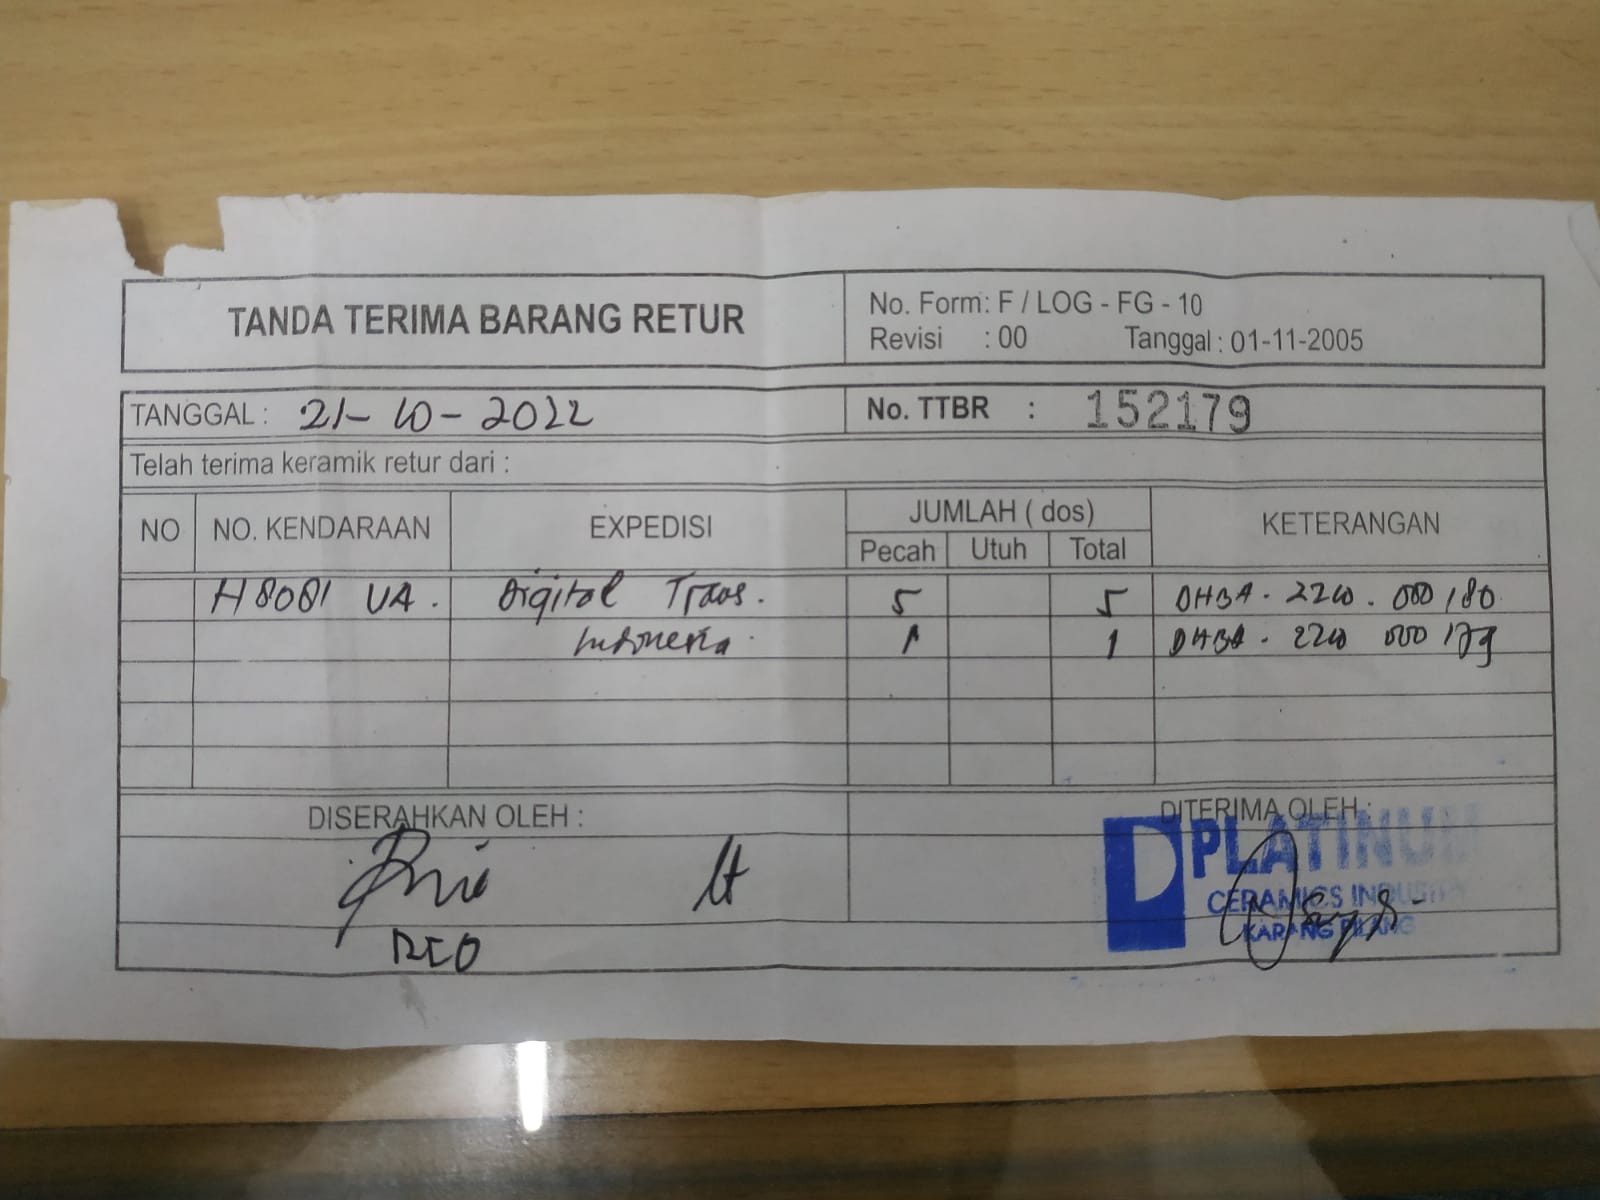 TANDA TERIMA BARANG RETUR
No. Form: F / LOG - FG - 10
Revisi : 00 Tanggal : 01-11-2005
TANGGAL : 21-10-2022
No. TTBR : 152179
Telah terima keramik retur dari :
NO NO. KENDARAAN EXPEDISI JUMLAH ( dos) KETERANGAN
Pecah Utuh Total
H 8081 UA . Digital Trans. 5 5 DHBA . 2210 . 000 180
Indonesia. 1 1 DHBA - 2210 000 179
DISERAHKAN OLEH : DITERIMA OLEH :
PLATINUM
CERAMICS INDUSTRY
KARANG PILANG